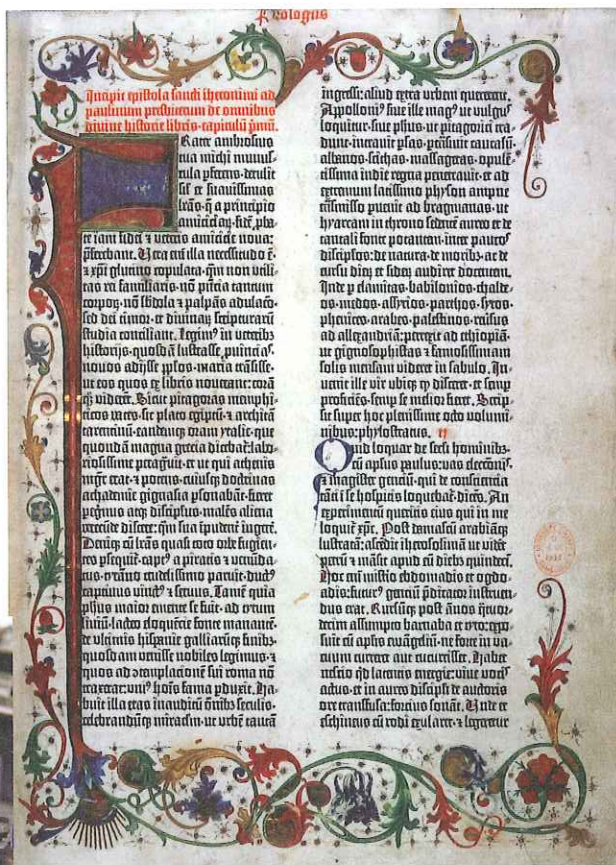 Prologus
Incipit epistola sancti iheronimi ad
paulinum presbiterum de omnibus
divine historie libris·capitulū pmū.
Frater ambrosius
tua michi munus-
cula pferens·detulit
sil et suavissimas
lrās·q̄ a principio
amiciciaꝝ·fidē pba-
te iam fidei ⁊ veteris amicicie nova:
pferebant. Vera enī illa necessitudo ē·
⁊ xpi glutino copulata·qm non utili-
tas rei familiaris·nō pncia tantum
corpoꝝ·nō sbdola ⁊ palpās adulacō·
sed dei timor·et divinaꝝ scripturarū
studia conciliant. Legim⁹ in veterib⁹
historijs·quosdā lustrasse puincias·
novos adijsse pplos·maria trāsisse·
ut eos quos ex libris noverant: corā
qꝫ viderēt. Sicut pitagoras memphi-
ticos vates·sic plato egiptū·⁊ architā
tarentinū·eandemqꝫ oram ytalie·que
quondā magna grecia dicebat: labo-
riosissime peragvit·et ut qui athenis
mgr erat·⁊ potens·cuiusqꝫ doctrinas
achademie gignasia psonabāt·fieret
pegrinus atqꝫ discipulus·malēs aliena
verecūde discere: qm̄ sua īpudent ingerē.
Deniqꝫ cū lrās quasi toto orbe fugien-
tes psequit·capt⁹ a piratis ⁊ venūda-
tus·tyrāno crudelissimo paruit·duct⁹
captivus vinct⁹ ⁊ servus. Tamē quia
phus maior emente se fuit·ad tytum
liviū·lacteo eloquētie fonte manantē·
de ultimis hispanie galliarūqꝫ finib⁹·
quosdam venisse nobiles legimus·⁊
quos ad ɔtemplacionē sui roma nō
traxerat: uni⁹ hoīs fama pduxit. Ha-
buit illa etas inauditū oīnib⁹ seculis·
celebrandūqꝫ miraclm·ut urbē tantā
ingressi: aliud extra urbem quererent.
Appolloni⁹ sive ille mag⁹ ut vulgus
loquitur·sive phus·ut pitagorici tra-
dunt·intravit psas·ptrāsivit caucasū·
albanos·scithas·massagetas·opulē-
tissima indie regna penetravit·et ad
extremum latissimo physon amne
trāsmisso puenit ad bragmanas·ut
hyarcam in throno sedentē aureo et de
tantali fonte potantem·inter paucos
discipulos·de natura·de moribꝫ ac de
cursu dieꝝ et sideꝝ audiret docentem.
Inde p elamitas·babilonios·chalde-
os·medos·assyrios·parthos·syros·
phenices·arabes·palestinos·reversus
ad allexandriā: perrexit ad ethiopiā·
ut gignosophistas ⁊ famosissimam
solis mensam videret in sabulo. In-
venit ille vir ubiqꝫ qꝫ disceret·et semp
proficiēs·semp se melior fieret. Scrip-
sit super hoc plenissime octo volumi-
nibus: phylostratus. II
Quid loquar de seculi hominibꝫ·
cū apostolus paulus: vas electionis·
⁊ magister genciū·qui de consciencia
tāti ī se hospitis loquebat·dicēs. An
experimentū queritis eius qui in me
loquit xpc. Post damascū arabiāqꝫ
lustratā: ascēdit iherosolimā ut videt
petrū ⁊ māsit apud eū diebꝫ quindecī.
Hoc enī misterio ebdomadis et ogdo-
adis: futur⁹ genciū pdicator instruen-
dus erat. Rursūqꝫ post ānos quor-
decim assumpto barnaba et tyto: expo-
suit cū apostolis evāgeliū·ne forte in va-
cuum curreret aut cucurrisset. Habet
nescio qd latentis energie: vive vocis
actus·et in aures discipuli de auctoris
ore transfusa: forcius sonāt. Unde et
eschineus cū rodi exularet·⁊ legeretur